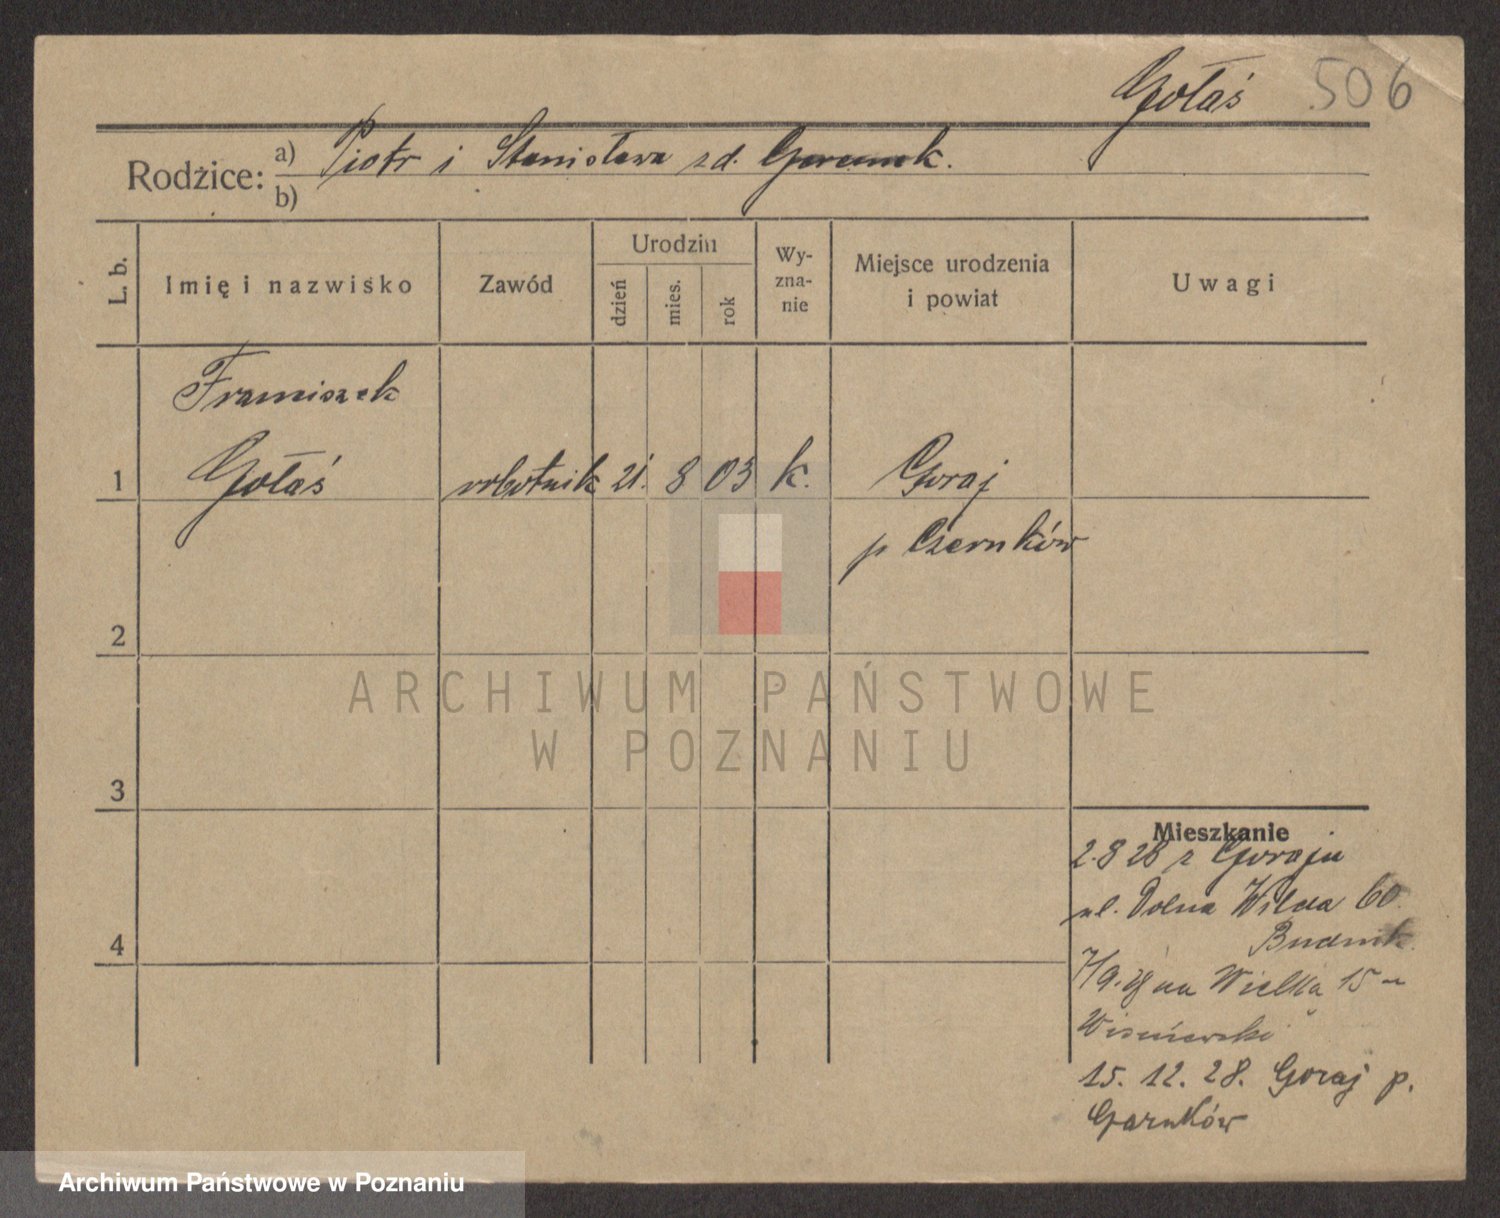 Gołaś 506
Rodzice: a) Piotr i Stanisława zd.
b)
L. b.
Imię i nazwisko
Zawód
Urodzin
dzień
mies.
rok
Wy-
zna-
nie
Miejsce urodzenia
i powiat
Uwagi
Franciszek
1 Gołaś robotnik 21. 8 03 k. Goraj
p Czarnków
2
ARCHIWUM PAŃSTWOWE
W POZNANIU
3
Mieszkanie
2.8 28 z Goraju
ul. Dolna Wilda 60.
4
7/9.28 na Wielka 15
Wiśniewski
15. 12. 28. Goraj p.
Czarnków
Archiwum Państwowe w Poznaniu